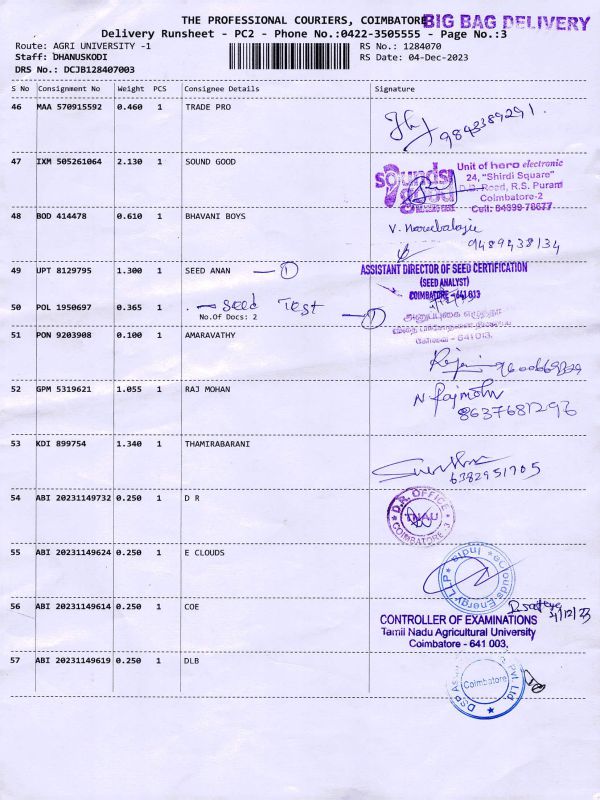 THE PROFESSIONAL COURIERS, COIMBATORE
BIG BAG DELIVERY
Delivery Runsheet - PC2 - Phone No.:0422-3505555 - Page No.:3
Route: AGRI UNIVERSITY -1 RS No.: 1284070
Staff: DHANUSKODI RS Date: 04-Dec-2023
DRS No.: DCJB128407003
S No Consignment No Weight PCS Consignee Details Signature
46 MAA 570915592 0.460 1 TRADE PRO
9843389291
47 IXM 505261064 2.130 1 SOUND GOOD
Unit of hero electronic
24, "Shirdi Square"
D.B. Road, R.S. Puram
Coimbatore-2
Cell: 84899 78677
48 BOD 414478 0.610 1 BHAVANI BOYS
9489438134
49 UPT 8129795 1.300 1 SEED ANAN — 1
ASSISTANT DIRECTOR OF SEED CERTIFICATION
(SEED ANALYST)
COIMBATORE - 641 013
50 POL 1950697 0.365 1 . — Seed Test — 1
No.Of Docs: 2
51 PON 9203908 0.100 1 AMARAVATHY
52 GPM 5319621 1.055 1 RAJ MOHAN
N Rajmohn
8637681296
53 KDI 899754 1.340 1 THAMIRABARANI
6382951705
54 ABI 20231149732 0.250 1 D R
D.R. OFFICE
TNAU
COIMBATORE-3
55 ABI 20231149624 0.250 1 E CLOUDS
eClouds Energy LLP * India *
56 ABI 20231149614 0.250 1 COE
4/12/23
CONTROLLER OF EXAMINATIONS
Tamil Nadu Agricultural University
Coimbatore - 641 003.
57 ABI 20231149619 0.250 1 DLB
Pvt Ltd
Coimbatore